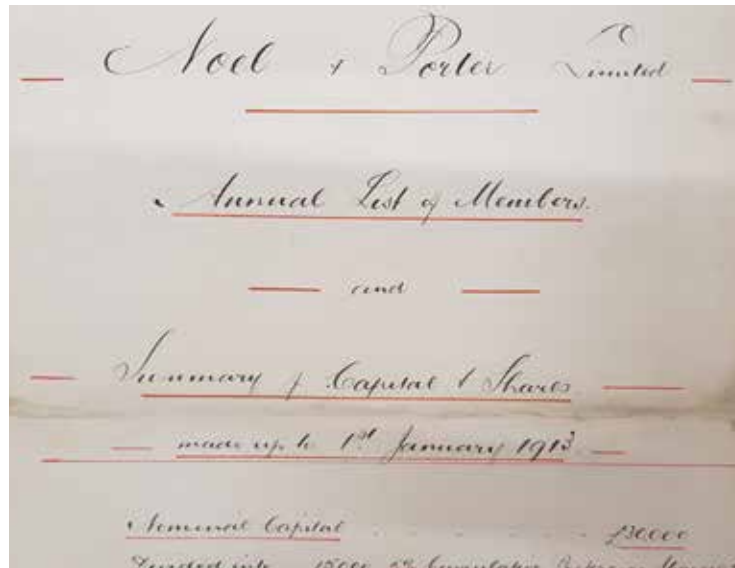 Noel & Porter Limited
Annual List of Members.
and
Summary of Capital & Shares
made up to 1st January 1913.
Nominal Capital £30,000
Divided into 15000 5% Cumulative